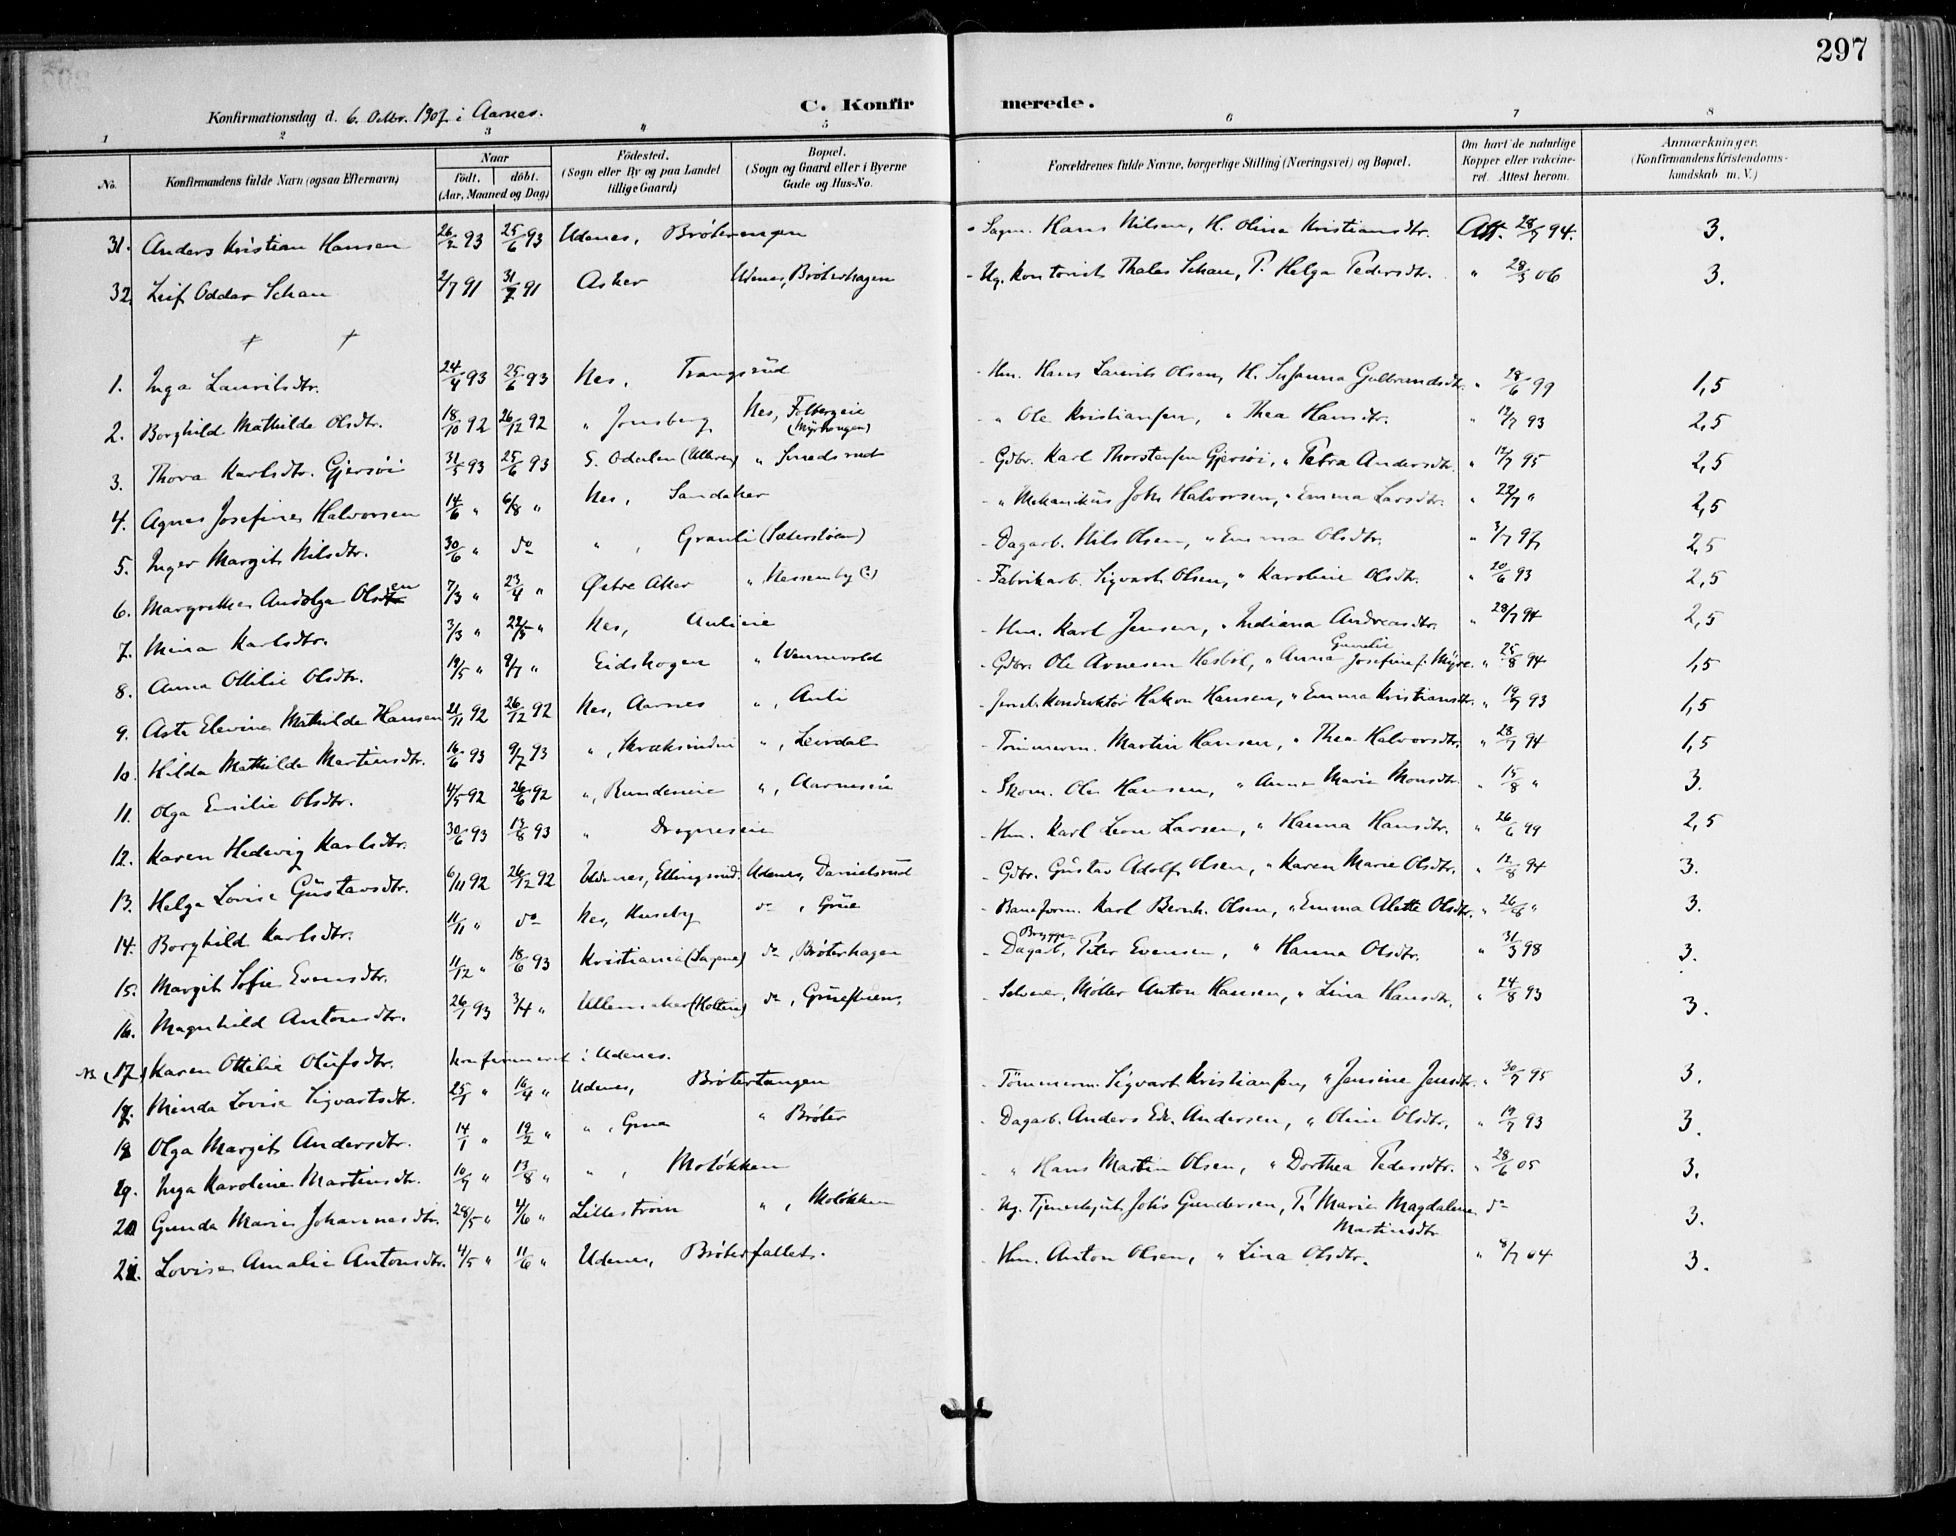 297
Konfirmationsdag d. 6. Oktbr. 1907 i Aarnes.
C. Konfirmerede.
1 2 3 " 5 6 7 8
No. Konfirmandens fulde Navn (ogsaa Efternavn) Naar födt. döbt. (Aar, Maaned og Dag) Födested. (Sogn eller By og paa Landet tillige Gaard) Bopæl. (Sogn og Gaard eller i Byerne Gade og Hus-No. Forældrenes fulde Navne, borgerlige Stilling (Næringsvei) og Bopæl. Om havt de naturlige Kopper eller vakcineret. Attest herom. Anmærkninger. (Konfirmandens Kristendomskundskab m. V.)
31. Anders Kristian Hansen 26/2 93 25/6 93 Udenes, Brøterengen Hans Nilsen, H. Olina Kristiansdtr. Att. 28/7 94. 3.
32. Leif Oddar Schau 2/7 91 31/7 91 Asker Udenes, Brøterhagen Ug. kontorist Thales Schau, P. Helga Pedersdtr. " 28/3 06 3.
1. Inga Lauritsdtr. 24/4 93 25/6 93 Nes, Trangsrud Hm. Hans Laurits Olsen, H. Susanna Gulbrandsdtr. " 18/6 99 1,5
2. Borghild Mathilde Olsdtr. 18/10 92 26/12 92 " Jonsberg Nes, Folbergeie (Myrengen) " Ole Kristiansen, " Thea Hansdtr. " 12/7 93 2,5
3. Thora Karlsdtr. Gjersöi 31/5 93 25/6 93 S. Odalen (Ulleren) " Smedsrud Gdbr. Karl Thorstensen Gjersöi, " Petra Andersdtr. " 12/7 95 2,5
4. Agnes Josefine Halvorsen 14/6 " 6/8 " Nes, Sandaker " Mekanikus Johs Halvorsen, " Emma Larsdtr. " 22/7 " 2,5
5. Inger Margit Nilsdtr. 30/6 " do " , Granli (Sæterstøen) Dagarb. Nils Olsen, " Emma Olsdtr. " 3/7 97 2,5
6. Margrethe Andolga Olsen 7/3 " 23/4 " Østre Aker " Hessemby (?) Fabrikarb. Sigvart Olsen, " Karoline Olsdtr. " 20/6 93 2,5
7. Mina Karlsdtr. 3/3 " 22/5 " Nes, Aulieie Hm. Karl Jensen, " Indiana Andreasdtr. " 28/7 94 2,5
8. Anna Otilie Olsdtr. 19/5 " 9/7 " Eidskogen " Wennevold Gdbr. Ole Arnesen Hesböl, " Anna Gunelie Josefine f. Myre. " 25/8 94 1,5
9. Asta Elevine Mathilde Hansen 21/11 92 26/12 92 Nes, Aarnes " , Auli Jernb. Konduktör Hakon Hansen, " Emma Kristiansdtr. " 19/7 93 1,5
10. Hilda Mathilde Martinsdtr. 16/6 93 9/7 93 " , Skræksrudeie " , Leirdal Tömmerm. Martin Hansen, " Thea Halvorsdtr. " 28/7 94 1,5
11. Olga Emilie Olsdtr. 4/5 92 26/6 92 " , Rundeneie " , Aarneseie Skom. Ole Hansen, " Anne Marie Monsdtr. " 15/8 " 3.
12. Karen Hedevig Karlsdtr. 30/6 93 13/8 93 " Dragneseie Hm. Karl Leon Larsen, " Hanna Hansdtr. " 26/6 99 2,5
13. Helga Lovise Gustavsdtr. 6/11 92 26/12 92 Udenes, Ellingsrud. Udenes, Danielsrud Gdbr. Gustav Adolf Olsen, " Karen Marie Olsdtr. " 12/8 94 3.
14. Borghild Karlsdtr. 11/11 " do Nes, Huseby do , Grue Baneform. Karl Bernh. Olsen, " Emma Alette Olsdtr. " 26/8 " 3.
15. Margit Sofie Evensdtr. 11/12 " 18/6 93 Kristiania (Sagene) do , Brøterhagen Brygge- Dagarb. Peter Evensen, " Hanna Olsdtr. " 31/3 98 3.
16. Magnhild Antonsdtr. 26/1 93 3/4 " Ullensaker do , Møller Anton Hansen, " Lina Hansdtr. " 24/8 93 3.
(17.) Karen Otilie Olufsdtr. konfirmeret i Udenes.
17. Minda Lovise Sigvartsdtr. 25/1 " 16/4 " Udenes, Brøtertangen Tömmerm. Sigvart Kristiansen, " Jensine Jensdtr. " 30/7 95 3.
18 Olga Margit Andersdtr. 14/1 " 19/2 " " , Grue " Brøter Dagarb. Anders Edv. Andersen, " Oline Olsdtr. " 19/7 93 3.
19. Inga Karoline Martinsdtr. 10/7 " 13/8 " " , Moløkken " Hans Martin Olsen, " Dorthea Pedersdtr. " 28/6 05 3.
20 Gunda Marie Johannesdtr. 28/5 " 4/6 " Lillestrøm " , Moløkken Ug. Tjenestegut Johs Gundersen, P. Marie Magdalene Martinsdtr do 3.
21. Lovise Amalie Antonsdtr. 4/5 " 11/6 " Udenes, Brøterfallet. Hm. Anton Olsen, " Lina Olsdtr. " 8/7 04 3.